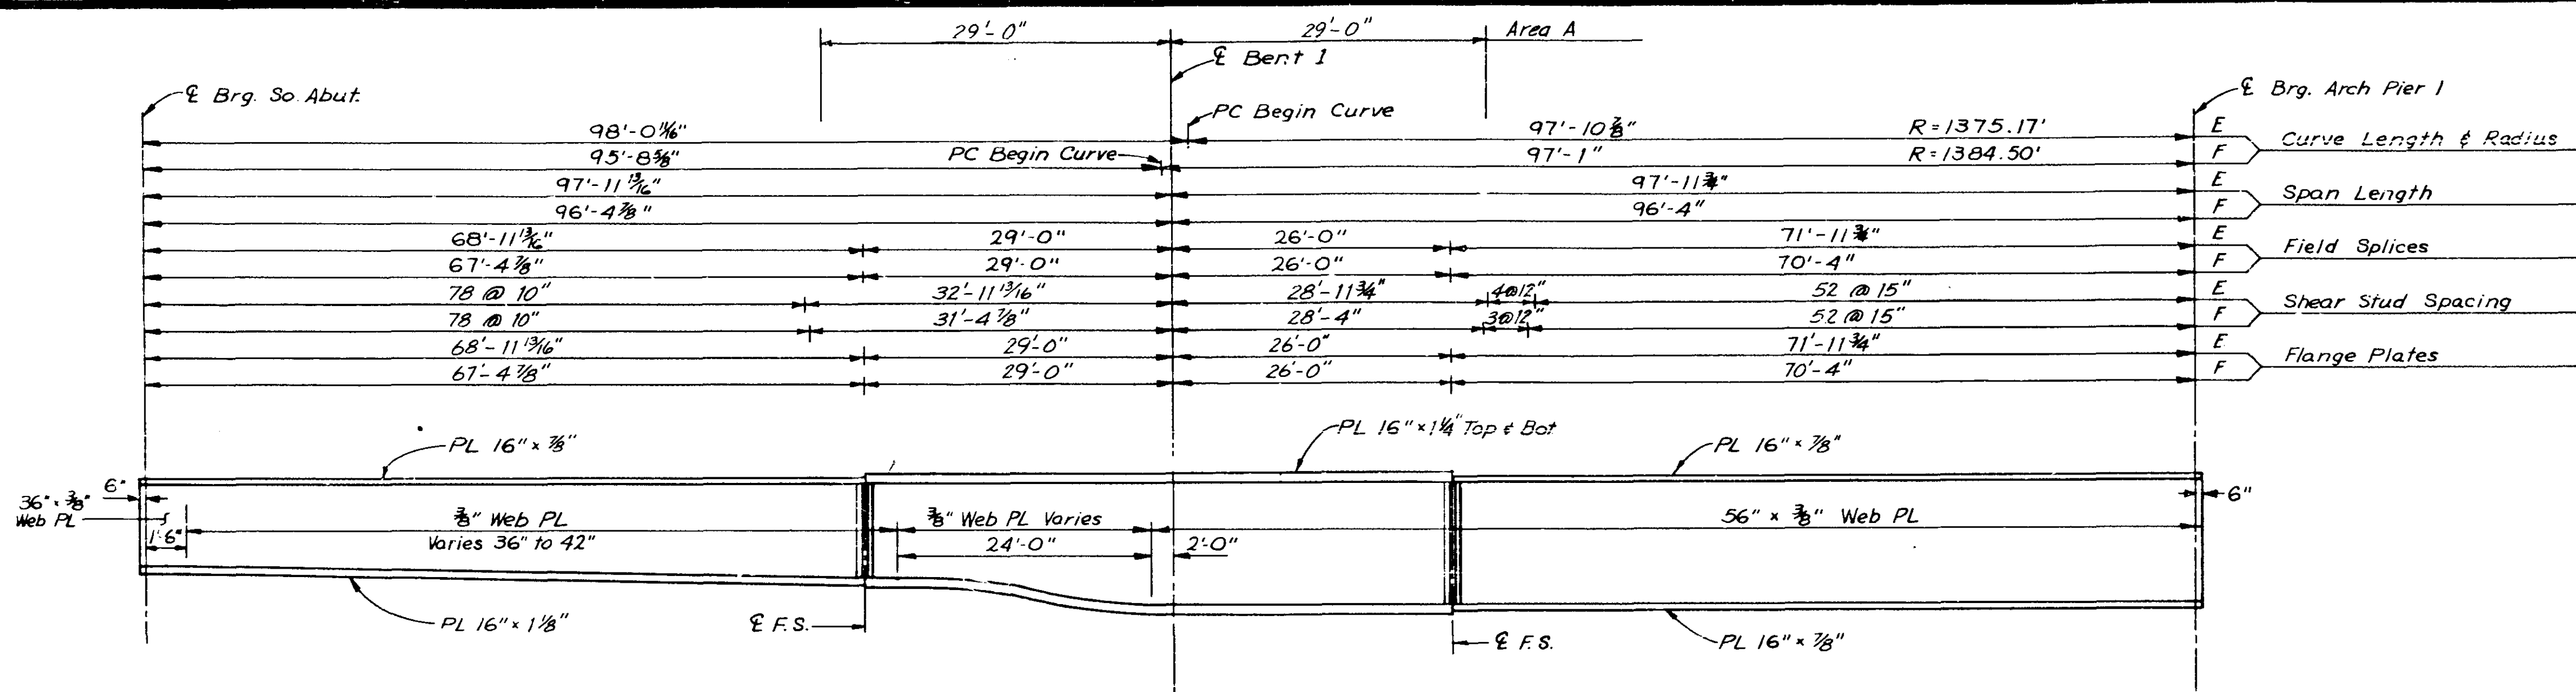 29'-0" 29'-0" Area A
℄ Bent 1
℄ Brg. So. Abut. ℄ Brg. Arch Pier 1
PC Begin Curve
98'-0 11/16" 97'-10 7/8" R=1375.17' E
Curve Length & Radius
95'-8 5/8" PC Begin Curve 97'-1" R=1384.50' F
97'-11 13/16" 97'-11 3/4" E
Span Length
96'-4 7/8" 96'-4" F
68'-11 13/16" 29'-0" 26'-0" 71'-11 3/4" E
Field Splices
67'-4 7/8" 29'-0" 26'-0" 70'-4" F
78 @ 10" 32'-11 13/16" 28'-11 3/4" 4@12" 52 @ 15" E
Shear Stud Spacing
78 @ 10" 31'-4 7/8" 28'-4" 3@12" 52 @ 15" F
68'-11 13/16" 29'-0" 26'-0" 71'-11 3/4" E
Flange Plates
67'-4 7/8" 29'-0" 26'-0" 70'-4" F
PL 16" x 7/8" PL 16" x 1 1/4" Top & Bot PL 16" x 7/8"
6" 6"
36" x 3/8"
Web PL
1'-6"
3/8" Web PL
Varies 36" to 42"
3/8" Web PL Varies
24'-0" 2'-0"
56" x 3/8" Web PL
PL 16" x 1 1/8" ℄ F.S. ℄ F.S. PL 16" x 7/8"